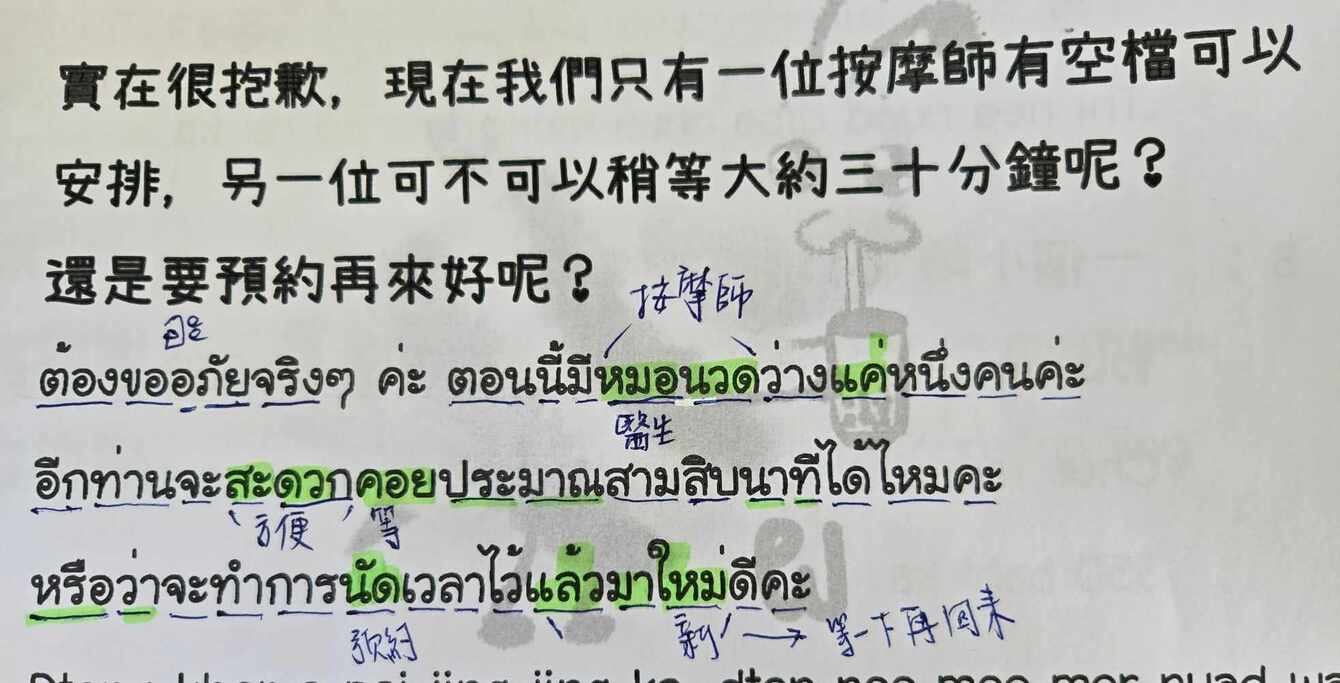 實在很抱歉，現在我們只有一位按摩師有空檔可以
安排，另一位可不可以稍等大約三十分鐘呢？
還是要預約再來好呢？
按摩師
ต้องขออภัยจริงๆ ค่ะ ตอนนี้มีหมอนวดว่างแค่หนึ่งคนค่ะ
醫生
อีกท่านจะสะดวกคอยประมาณสามสิบนาทีได้ไหมคะ
方便 等
หรือว่าจะทำการนัดเวลาไว้แล้วมาใหม่ดีคะ
預約 新 → 等一下再回來